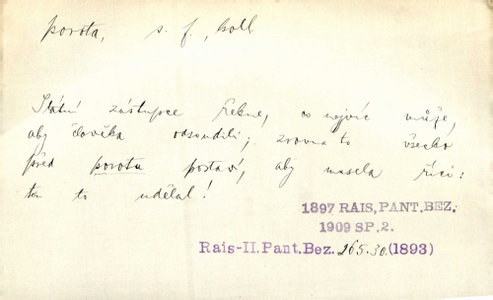 porota, s. f., koll
Státní zástupce řekne, co nejvíc může,
aby člověka odsoudili; zrovna to všecko
před porotu postaví, aby musela říci:
ten to udělal!
1897 RAIS, PANT. BEZ.
1909 SP, 2.
Rais-II. Pant. Bez. 265.30. (1893)